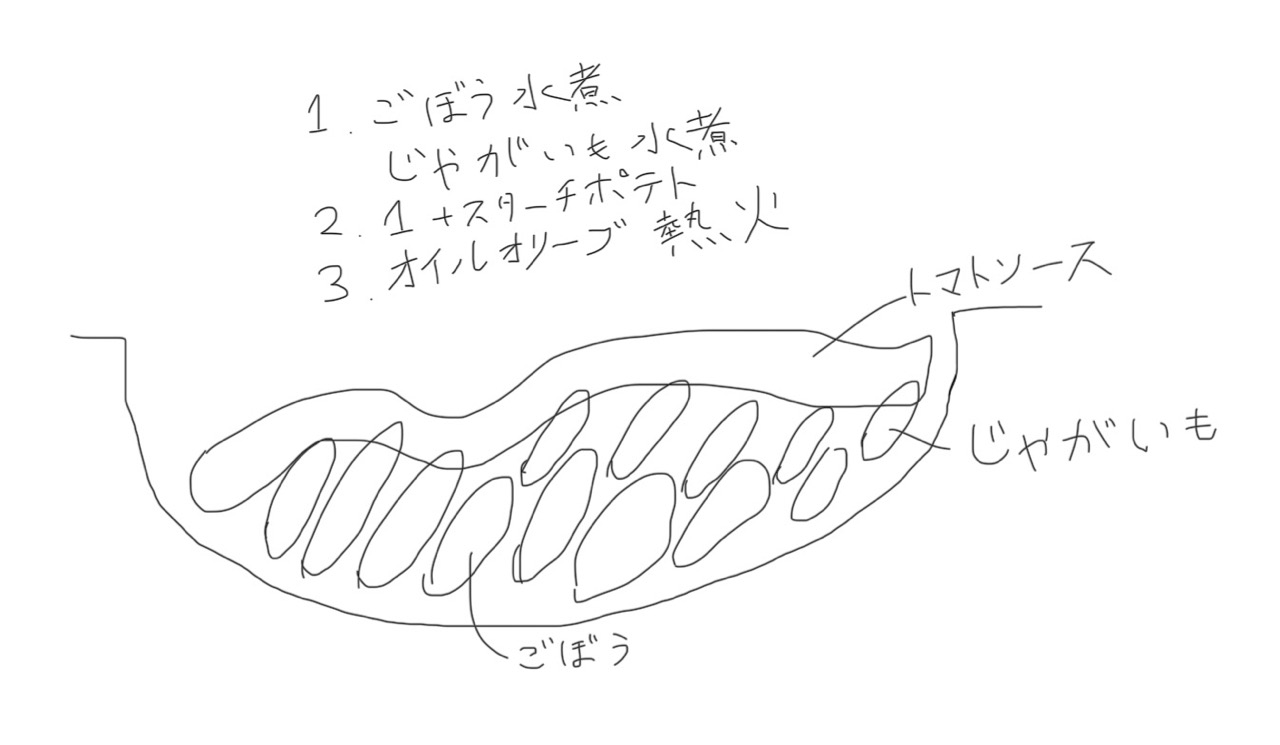 1. ごぼう水煮
じゃがいも水煮
2. 1+スターチポテト
3. オイルオリーブ 熱火
トマトソース
じゃがいも
ごぼう